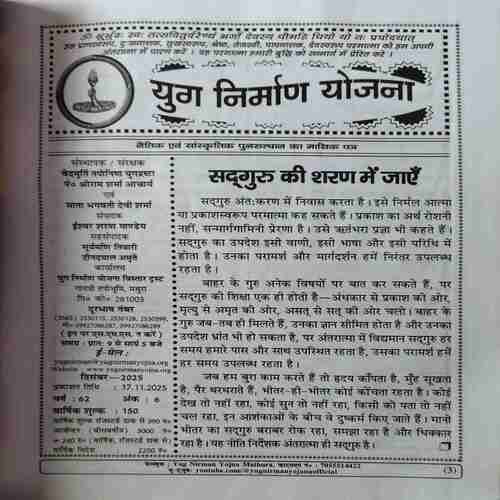 ॐ भूर्भुवः स्वः तत्सवितुर्वरेण्यं भर्गो देवस्य धीमहि धियो यो नः प्रचोदयात्
उस प्राणस्वरूप, दुःखनाशक, सुखस्वरूप, श्रेष्ठ, तेजस्वी, पापनाशक, देवस्वरूप परमात्मा को हम अपनी
अंतरात्मा में धारण करें । वह परमात्मा हमारी बुद्धि को सन्मार्ग में प्रेरित करे ।
युग निर्माण योजना
नैतिक एवं सांस्कृतिक पुनरुत्थान का मासिक पत्र
संस्थापक / संरक्षक
वेदमूर्ति तपोनिष्ठ युगद्रष्टा
पं० श्रीराम शर्मा आचार्य
एवं
माता भगवती देवी शर्मा
संपादक
ईश्वर शरण पाण्डेय
सहसंपादक
सूर्यमणि तिवारी
दीनदयाल अमृते
कार्यालय
युग निर्माण योजना विस्तार ट्रस्ट
गायत्री तपोभूमि, मथुरा
पि० को० 281003
दूरभाष नंबर
(0565) 2530115, 2530128, 2530399,
मो. 09927086287, 09927086289
( इन पर एस.एम.एस. न करें )
समय : प्रातः 9 से सायं 5 बजे
ई-मेल :
yugnirman@yugnirmanyojna.org
Website : www.yugnirmanyojna.org
दिसंबर—2025
प्रकाशन तिथि : 17.11.2025
वर्ष : 62 अंक : 6
वार्षिक शुल्क : 150
वार्षिक शुल्क रजिस्टर्ड डाक से 390 रु०
आजीवन (बीसवर्षीय) 3000 रु०
+ 240 रु० (वार्षिक, रजिस्टर्ड डाक से)
वार्षिक विदेश 2200 रु०
सद्गुरु की शरण में जाएँ
सद्गुरु अंतःकरण में निवास करता है। इसे निर्मल आत्मा
या प्रकाशस्वरूप परमात्मा कह सकते हैं। प्रकाश का अर्थ रोशनी
नहीं, सन्मार्गगामिनी प्रेरणा है। उसे ऋतंभरा प्रज्ञा भी कहते हैं।
सद्गुरु का उपदेश इसी वाणी, इसी भाषा और इसी परिधि में
होता है। उनका परामर्श और मार्गदर्शन हमें निरंतर उपलब्ध
रहता है।
बाहर के गुरु अनेक विषयों पर बात कर सकते हैं, पर
सद्गुरु की शिक्षा एक ही होती है—अंधकार से प्रकाश की ओर,
मृत्यु से अमृत की ओर, असत् से सत् की ओर चलो। बाहर के
गुरु जब-तब ही मिलते हैं, उनका ज्ञान सीमित होता है और उनका
उपदेश भ्रांत भी हो सकता है, पर अंतरात्मा में विद्यमान सद्गुरु हर
समय हमारे पास और साथ उपस्थित रहता है, उसका परामर्श हमें
हर समय उपलब्ध रहता है।
जब हम बुरा काम करते हैं तो हृदय काँपता है, मुँह सूखता
है, पैर थरथराते हैं, भीतर-ही-भीतर कोई कोंचता रहता है। कोई
देख तो नहीं रहा, कोई सुन तो नहीं रहा, किसी को पता तो नहीं
चल रहा, इन आशंकाओं के बीच वे दुष्कर्म किए जाते हैं। मानो
भीतर का सद्गुरु बराबर रोक रहा, समझा रहा है और धिक्कार
रहा है। यह नीति निर्देशक अंतरात्मा ही सद्गुरु है।
फेसबुक : Yug Nirman Yojna Mathura, व्हाट्सएप नं० : 7055514422
यू-ट्यूब: youtube.com/@yugnirmanyojanaofficial
(3)